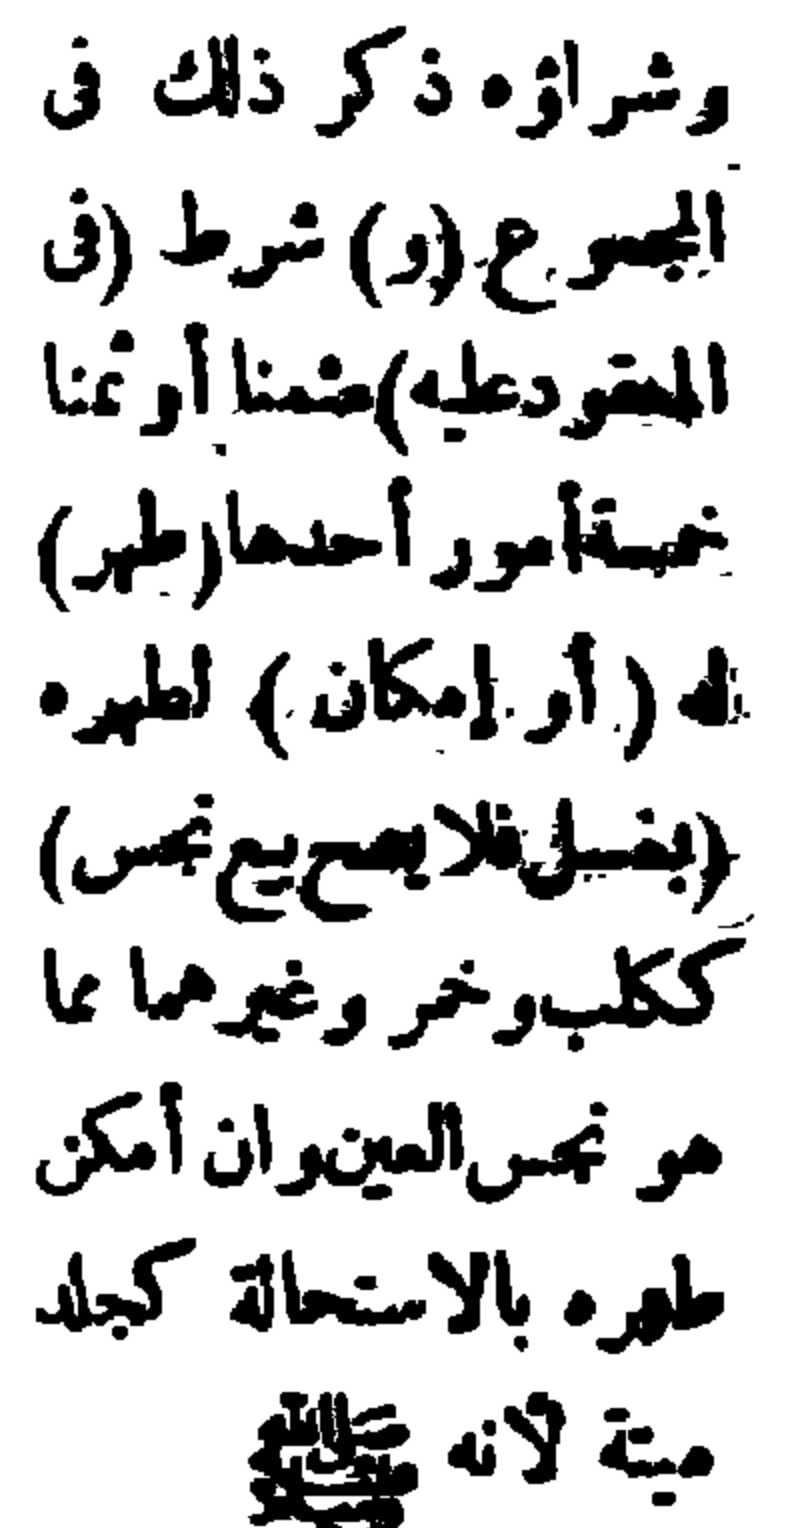 وشراؤه ذكر ذلك فى
المجموع (و) شرط (فى
المعقود عليه) مثمنا أو ثمنا
خمسة أمور أحدها (طهر)
له (أو إمكان) لطهره
(بغسل فلا يصح بيع نجس)
ككلب وخمر وغيرهما مما
هو نجس العين وان أمكن
طهره بالاستحالة كجلد
ميتة لأنه ﷺ